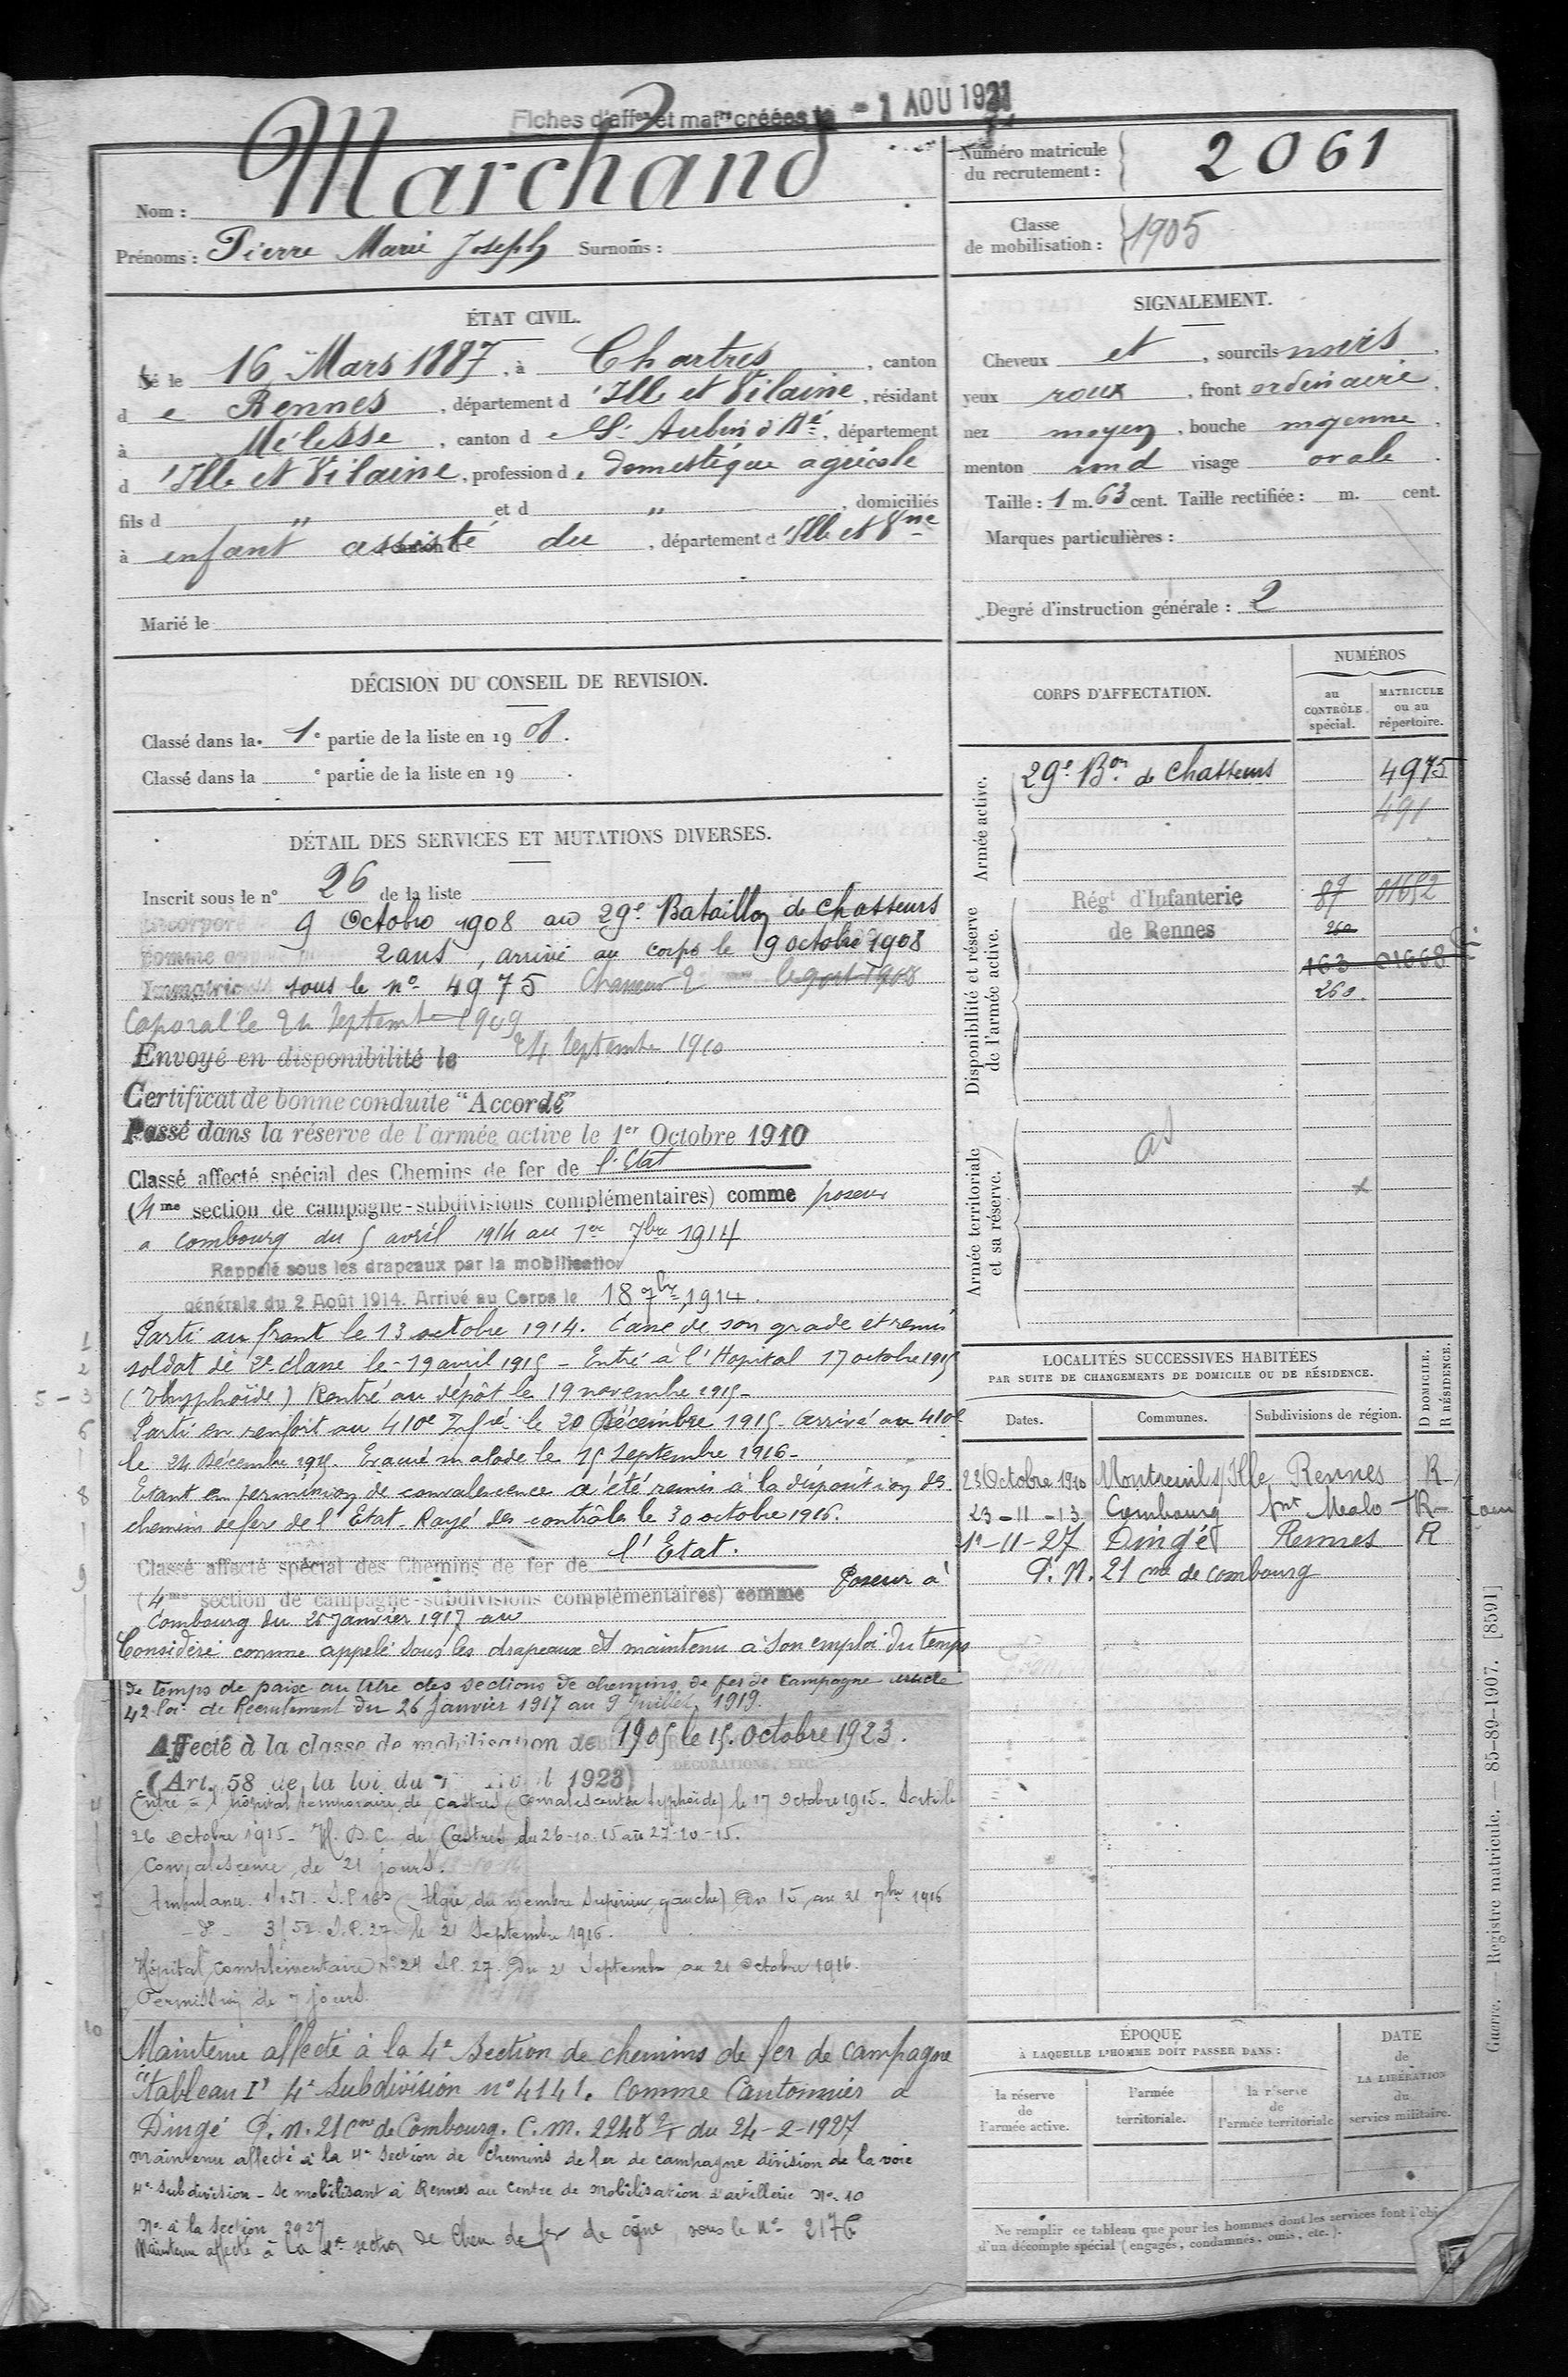 Fiches d'aff on et mat re créées le - 1 AOU 1921
Nom : Marchand
Prénoms : Pierre Marie Joseph Surnoms :
Numéro matricule du recrutement : 2061
Classe de mobilisation : 1905
ÉTAT CIVIL.
Né le 16 Mars 1887, à Chartres, canton
de Rennes, département d'Ille et Vilaine, résidant
à Mélesse, canton de St Aubin d'Ané, département
d'Ille et Vilaine, profession de domestique agricole
fils d " et d ", domiciliés
à enfant assisté du, département d'Ille et Vne
Marié le
SIGNALEMENT.
Cheveux et, sourcils noirs,
yeux roux, front ordinaire,
nez moyen, bouche moyenne,
menton rond visage ovale.
Taille : 1 m. 63 cent. Taille rectifiée : m. cent.
Marques particulières :
Degré d'instruction générale : 2
DÉCISION DU CONSEIL DE REVISION.
Classé dans la 1e partie de la liste en 1908.
Classé dans la e partie de la liste en 19 .
DÉTAIL DES SERVICES ET MUTATIONS DIVERSES.
Inscrit sous le n° 26 de la liste
Incorporé 9 Octobre 1908 au 29e Bataillon de Chasseurs
comme 2 ans, arrivé au corps le 9 octobre 1908
Immatriculé sous le no 4975 Chasseur 2
Caporal le 24 Septembre 1909
Envoyé en disponibilité le 24 Septembre 1910
Certificat de bonne conduite "Accordé"
Passé dans la réserve de l'armée active le 1er Octobre 1910
Classé affecté spécial des Chemins de fer de l'Etat
(4me section de campagne-subdivisions complémentaires) comme poseur
à Combourg du 5 avril 1914 au 1er 7bre 1914
Rappelé sous les drapeaux par la mobilisation
générale du 2 Août 1914. Arrivé au Corps le 18 7bre 1914.
Parti au front le 13 octobre 1914. Cassé de son grade et remis
soldat de 2e classe le 19 avril 1915 - Entré à l'Hopital 17 octobre 1915
(thyphoïde) Rentré au dépôt le 19 novembre 1915-
Parti en renfort au 410e Inf ie le 20 Décembre 1915. Arrivé au 410e
le 24 Décembre 1915. Evacué malade le 15 Septembre 1916-
Etant en permission de convalescence a été remis à la disposition des
chemin de fer de l'Etat. Rayé des contrôles le 30 octobre 1916.
Classé affecté spécial des Chemins de fer de l'Etat.
(4me section de campagne-subdivisions complémentaires) comme Poseur à
Combourg du 26 Janvier 1917 au
Considéré comme appelé sous les drapeaux et maintenu à son emploi du temps
de temps de paix au titre des sections de chemins de fer de Campagne article
42 loi de Recrutement du 26 Janvier 1917 au 9 Juillet 1919.
Affecté à la classe de mobilisation de 1905 le 15 Octobre 1923.
(Art. 58 de la loi du 1923)
Entré à l'hôpital temporaire de Castres (Convalescente typhoïde) le 17 Octobre 1915. Sorti le
26 Octobre 1915- H.D.C. de Castres du 26-10-15 au 27-10-15.
Convalescence de 21 jours.
Ambulance 1/151 S.P. 163 (Algie du membre supérieur gauche) du 15 au 21 7bre 1916
- d° - 3/52 S.P. 27 le 21 Septembre 1916.
Hôpital complémentaire N°24 S.P. 27. du 21 Septembre au 21 Octobre 1916.
Permission de 7 jours.
Maintenu affecté à la 4e Section de chemins de fer de campagne
"tableau I" 4e Subdivision n° 4141. Comme Cantonnier à
Dingé P.N. 21 Cne de Combourg. C.M. 2248 2/T du 24-2-1927
Maintenu affecté à la 4e Section de Chemins de fer de campagne division de la voie
4e Subdivision - se mobilisant à Rennes au Centre de mobilisation d'artillerie No 10
No à la Section 2927
Maintenu affecté à la 4e section de Chem de fer de cgne sous le No 2176
CORPS D'AFFECTATION.
NUMÉROS
au CONTRÔLE spécial.
MATRICULE ou au répertoire.
Armée active.
29e Bon de Chasseurs 4975
491
Disponibilité et réserve de l'armée active.
Régt d'Infanterie 87 01652
de Rennes 260
163 01668
260.
Armée territoriale et sa réserve.
as
LOCALITÉS SUCCESSIVES HABITÉES
PAR SUITE DE CHANGEMENTS DE DOMICILE OU DE RÉSIDENCE.
Dates. Communes. Subdivisions de région. D DOMICILE. R RÉSIDENCE.
23 Octobre 1910 Montreuil s/ Ille Rennes R
23-11-13 Combourg St Malo R
1e-11-27 Dingé Rennes R
P.N. 21 cne de combourg
ÉPOQUE
À LAQUELLE L'HOMME DOIT PASSER DANS :
la réserve de l'armée active.
l'armée territoriale.
la réserve de l'armée territoriale
DATE de LA LIBÉRATION du service militaire.
Ne remplir ce tableau que pour les hommes dont les services font l'obj
d'un décompte spécial (engagés, condamnés, omis, etc.).
Guerre. — Registre matricule. — 85-89-1907. [8591]